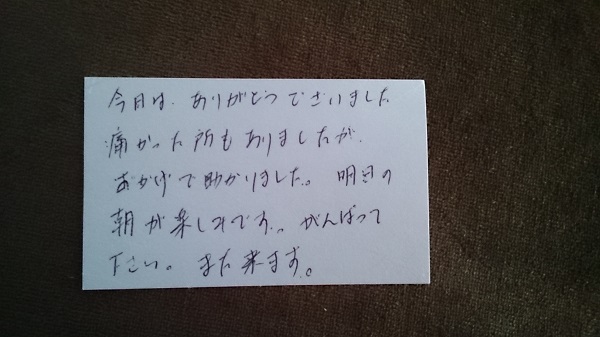 今日は、ありがとうございました
痛かった所もありましたが、
おかげで助かりました。明日の
朝が楽しみです。がんばって
下さい。また来ます。